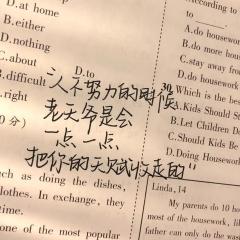 According to
D.at home
B.either
D.nothing
C.about
D.to
B.difficult
.right
0分)
A.do housework
B.do more hou
C.stay away fro
D.do housework
Which is the bes
A.Kids Should S
B.Let Children D
C.Should Kids Be
D.Doing Housework
“人不努力的时候
老天爷是会
一点一点
把你的天赋收走的”
ch as doing the dishes,
lothes. In exchange, they
time.
one of the most popular
Linda,14
My parents do 10 ho
most of the housework, lik
father can only do the was